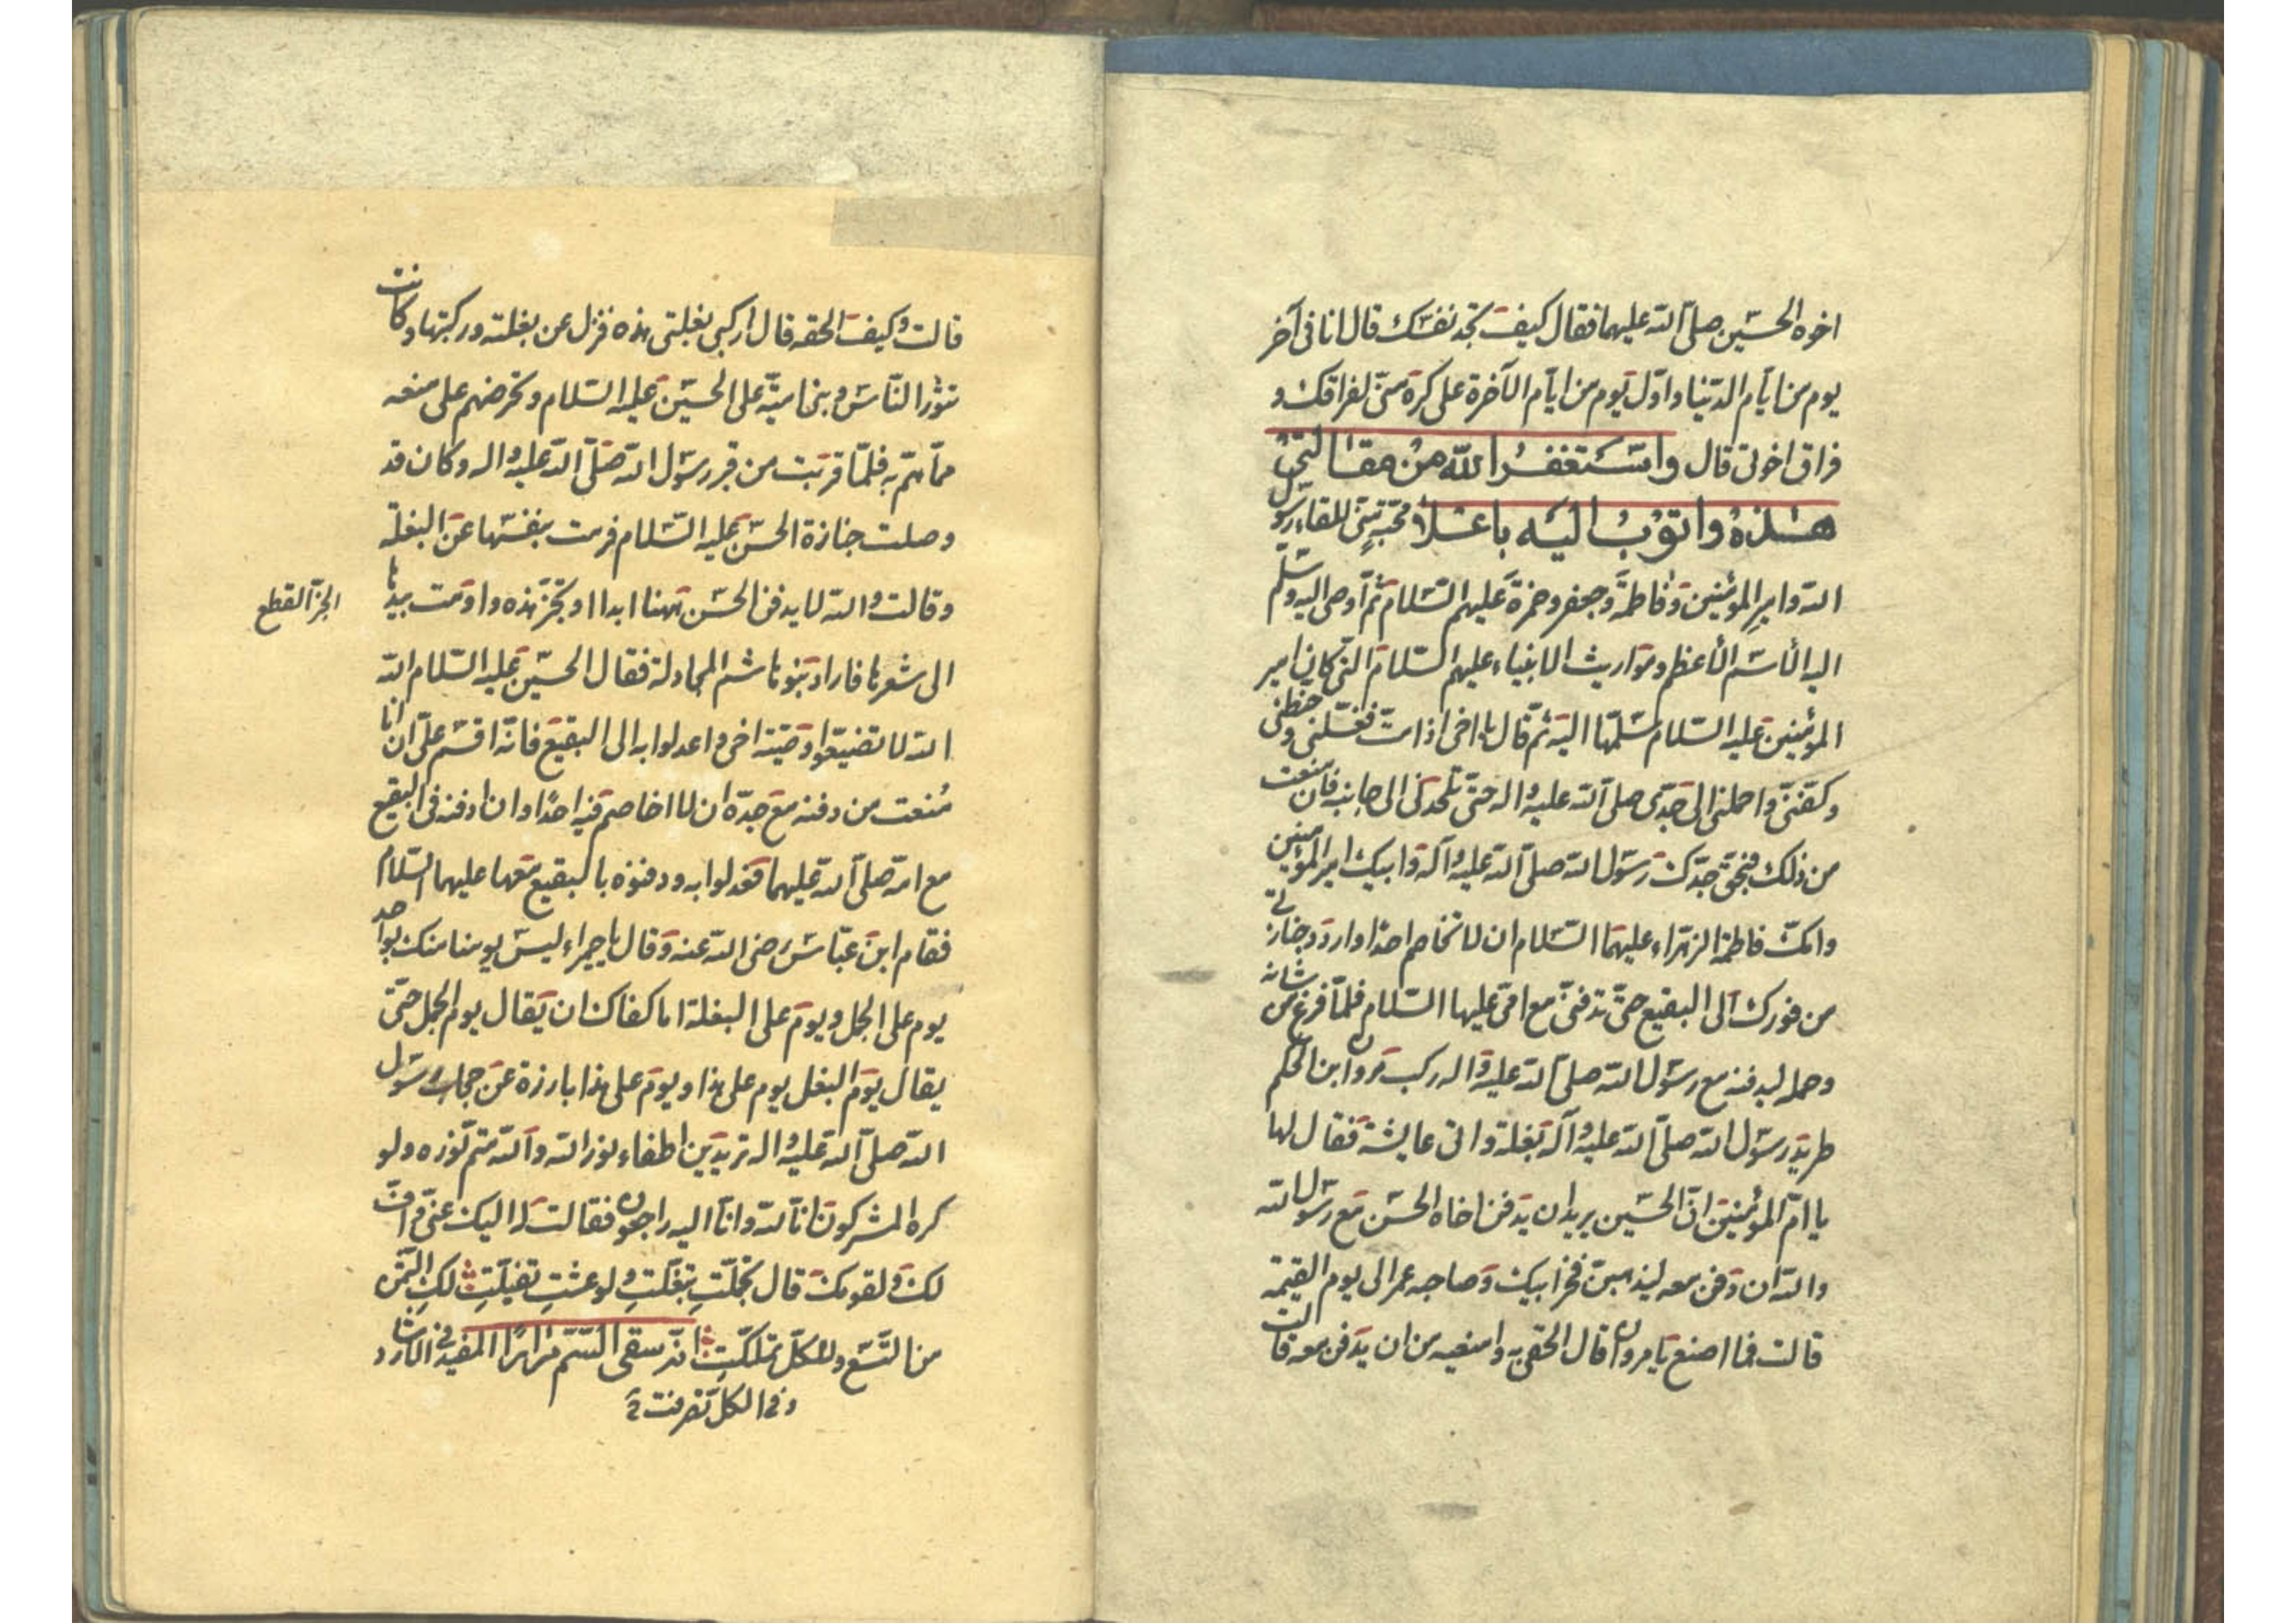 اخوه الحسين صلى الله عليهما فقال كيف تجد نفسك قال انا في آخر
يوم من ايام الدنيا واول يوم من ايام الآخرة على كره منى لفراقك و
فراق اخوتى قال واستغفر الله من مقالتي
هذه واتوب اليه محبة منى للقاء رسول
الله وامير المؤمنين وفاطمة وجعفر وحمزة عليهم السلام ثم اوصى اليه وسلم
اليه الاسم الأعظم ومواريث الانبياء عليهم السلام التي كان امير
المؤمنين عليه السلام سلمها اليه ثم قال يا اخى اذا مت فغسلنى وحنطنى
وكفنى واحملنى الى جدى صلى الله عليه واله حتى تلحدنى الى جانبه فان منعت
من ذلك فبحق جدك رسول الله صلى الله عليه وآله وابيك امير المؤمنين
وامك فاطمة الزهراء عليهما السلام ان لا تخاصم احدا واردد جنازتى
من فورك الى البقيع حتى تدفنى مع امى عليها السلام فلما فرغ من شانه
وحمله ليدفنه مع رسول الله صلى الله عليه واله ركب مروان ابن الحكم
طريد رسول الله صلى الله عليه وآله بغلة واتى عايشة فقال لها
يا ام المؤمنين ان الحسين يريد ان يدفن اخاه الحسن مع رسول الله
والله ان دفن معه ليذهبن فخر ابيك وصاحبه عمر الى يوم القيمة
قالت فما اصنع يا مروان قال الحقى به وامنعيه من ان يدفن معه قالت
قالت وكيف الحقه قال اركبى بغلتى هذه فنزل عن بغلته وركبتها وكانت
تثور الناس وبنى امية على الحسين عليه السلام وتحرضهم على منعه
مما هم به فلما قربت من قبر رسول الله صلى الله عليه واله وكان قد
وصلت جنازة الحسن عليه السلام فرمت بنفسها عن البغلة
وقالت والله لا يدفن الحسن ههنا ابدا او تجز هذه واومت بيدها
الجز القطع
الى شعرها فاراد بنو هاشم المجادلة فقال الحسين عليه السلام الله
الله لا تضيعوا وصية اخى واعدلوا به الى البقيع فانه اقسم على ان انا
منعت من دفنه مع جده ان لا اخاصم فيه احدا وان ادفنه في البقيع
مع امه صلى الله عليهما فعدلوا به ودفنوه بالبقيع معها عليهما السلام
فقام ابن عباس رضى الله عنه وقال يا حميراء ليس يومنا منك بواحد
يوم على الجمل ويوم على البغلة اما كفاك ان يقال يوم الجمل حتى
يقال يوم البغل يوم على هذا ويوم على هذا بارزة عن حجاب رسول
الله صلى الله عليه واله تريدين اطفاء نور الله والله متم نوره ولو
كره المشركون انا لله وانا اليه راجعون فقالت له اليك عنى واف
لك ولقومك قال تجملت تبغلت ولو عشت تفيلت لك الثمن
من التسع وللكل تملكت انه سقى السم مرارا المفيد في الارشاد
وفي الكل تصرفت